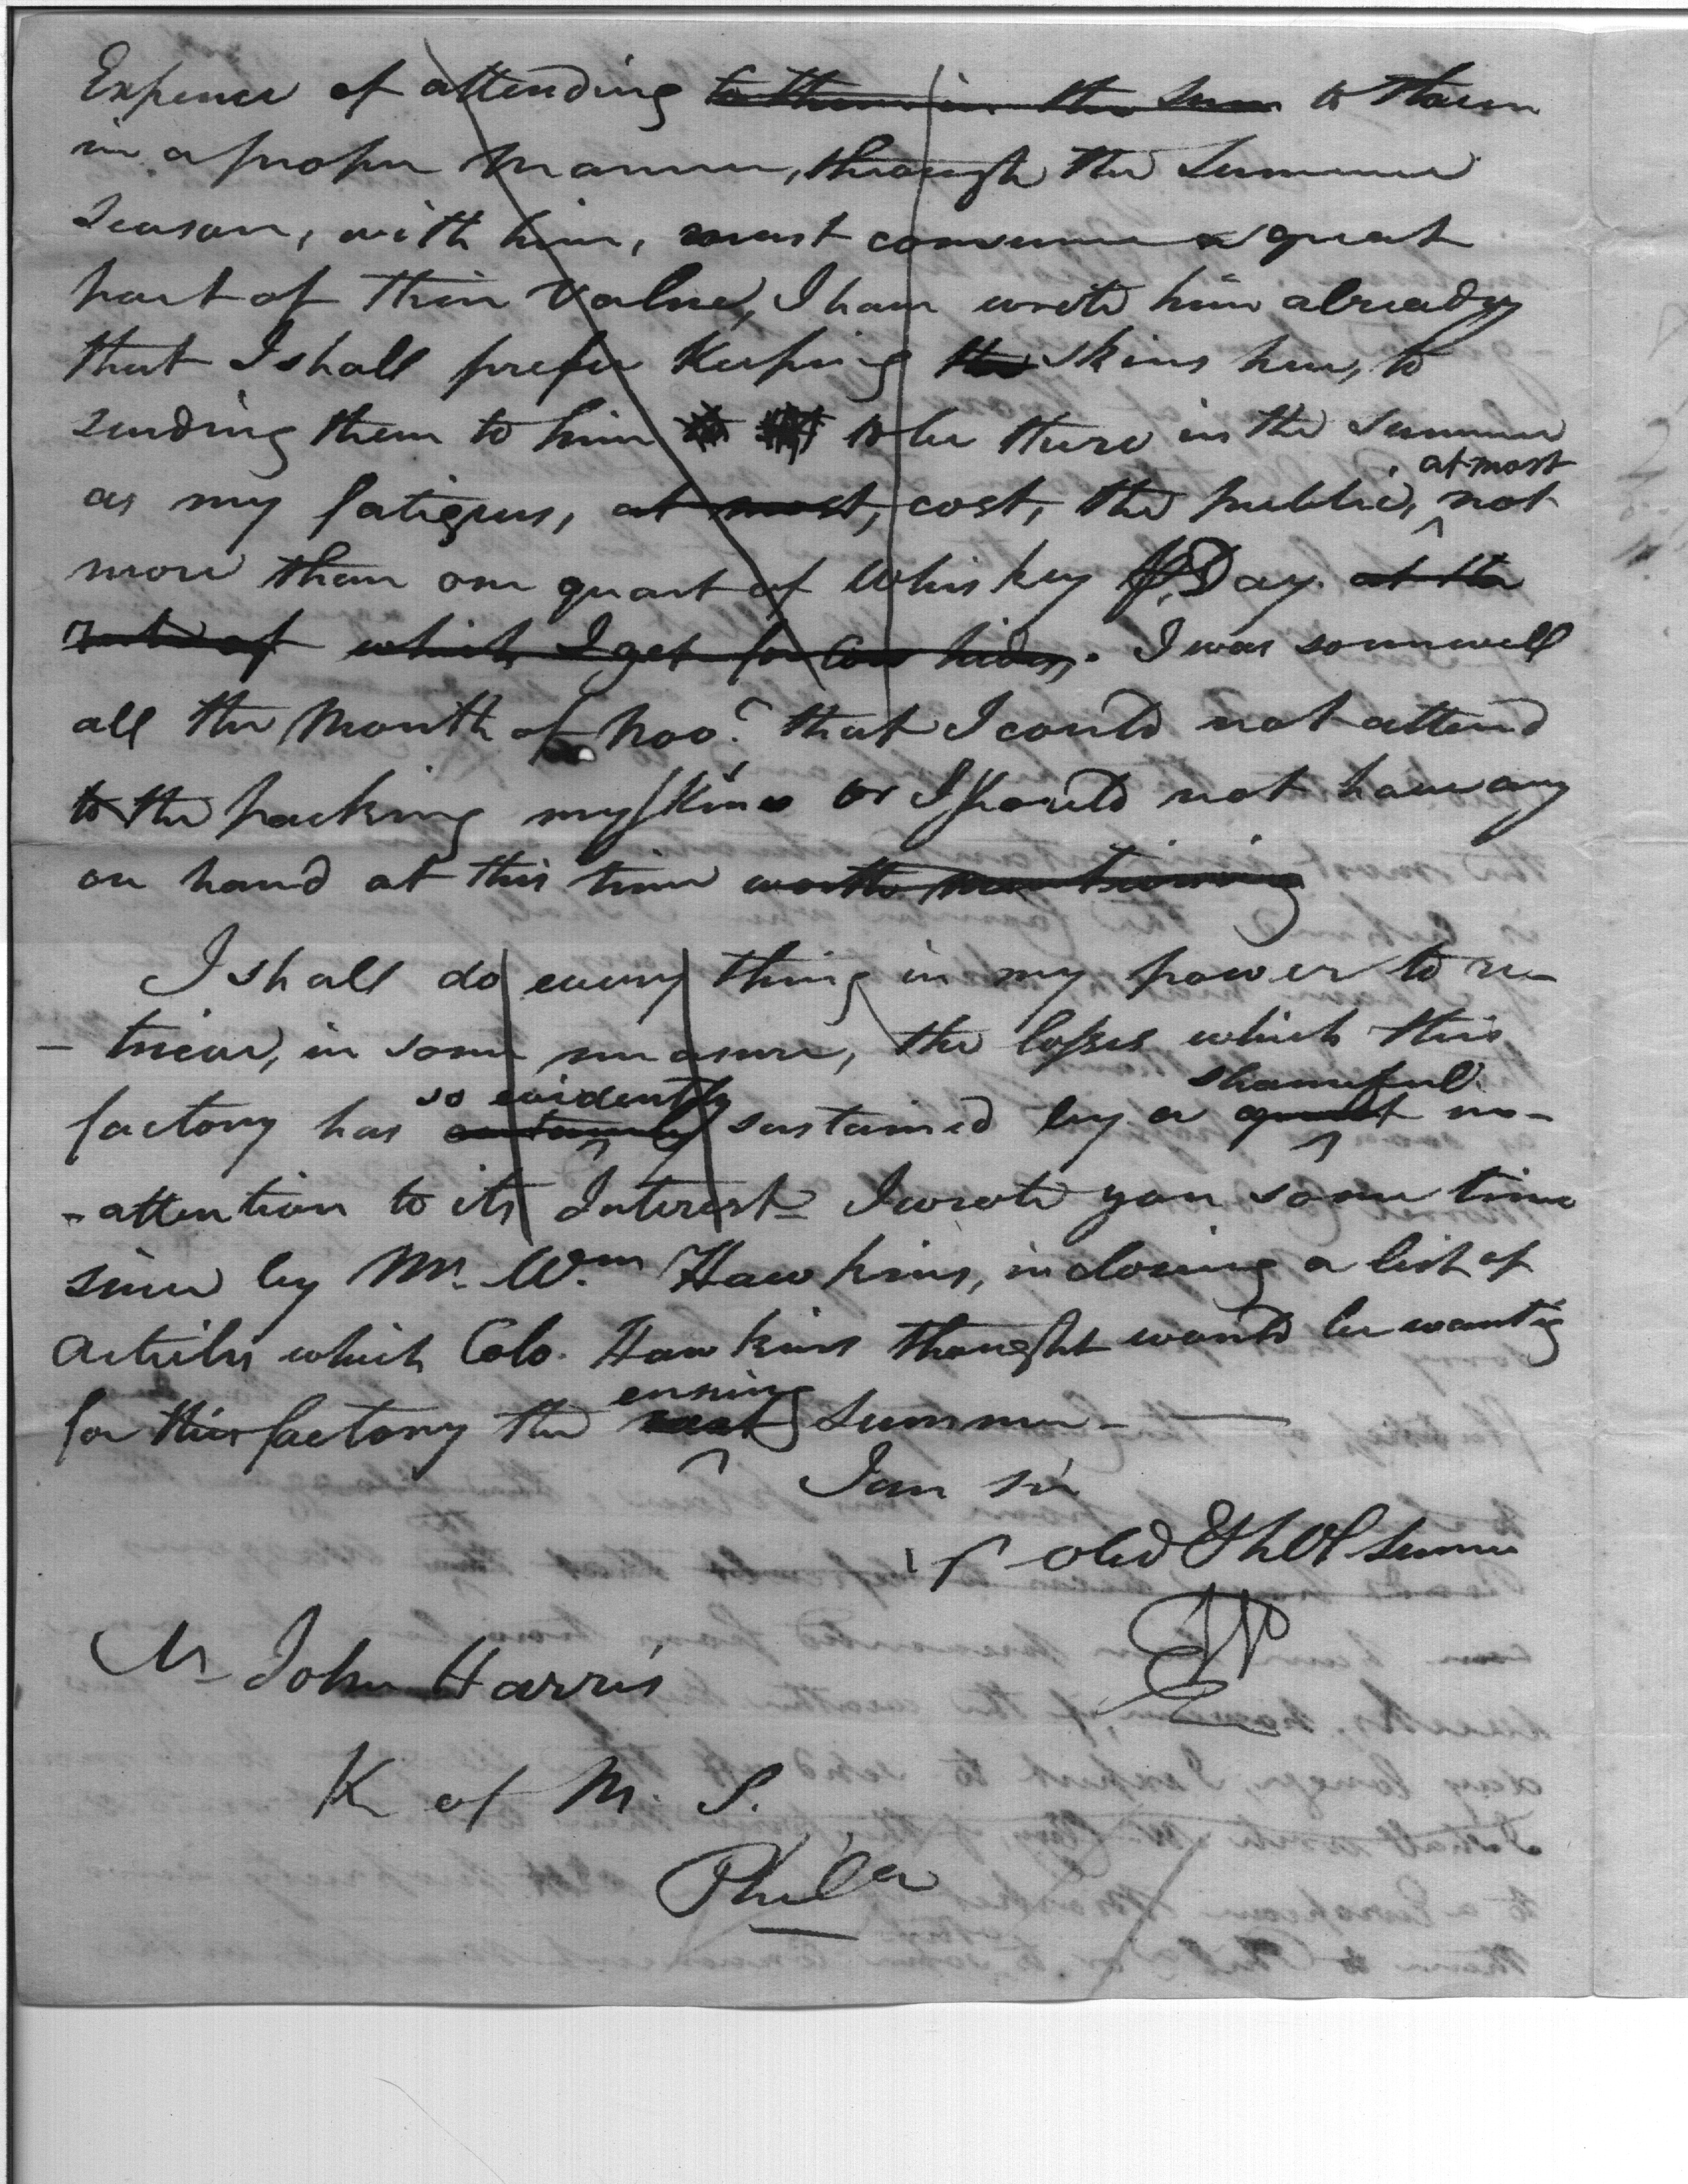 Expence of attending to them in the sum to them
in a proper manner, through the Summer
Season, with him, must consume a great
part of their value, I have wrote him already
that I shall prefer Keeping the skins here, to
sending them to him to be there in the summer
as my fatigues, at most, cost, the public, at most not
more than one quart of Whiskey P. Day. at the
rate of which I get for Cow hides. I was so unwell
all the Month of Nov.r that I could not attend
to the packing my skins or I should not have any
on hand at this time worth mentioning
I shall do every thing in my power to re-
-trieve, in some measure, the losses which this
so evidently shameful
factory has certainly sustained by a great in-
-attention to its Interest- I wrote you some time
since by Mr. Wm Hawkins, inclosing a list of
Articles which Colo. Hawkins thought would be wanting
ensuing
for this factory the next summer-
I am sir
obd Hbl Serv
EP
Mr John Harris
K of M. S.
Phila